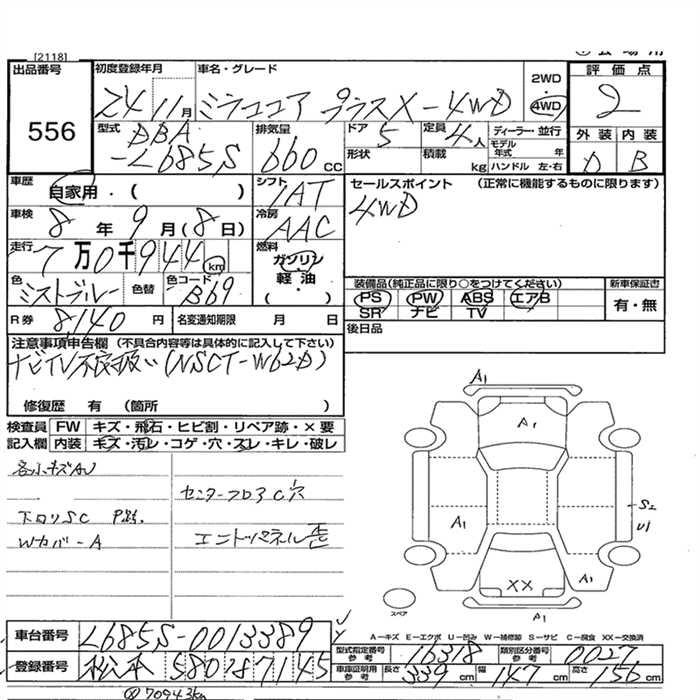 [2118]
出品番号
556
初度登録年月
24 11月
車名・グレード
ミラココア プラスX-4WD
2WD
4WD
評価点
2
外装 内装
D B
型式
DBA
-L685S
排気量
660 cc
ドア
5
定員
4人
形状
積載
kg
ディーラー・並行
モデル年式 年
ハンドル 左・右
車歴
自家用・( )
シフト
IAT
セールスポイント (正常に機能するものに限ります)
4WD
車検
8年9月(8日)
冷房
AAC
走行
7万0千944km
燃料
ガソリン
軽油
( )
色
ミストブルー
色替
色コード
B69
装備品(純正品に限り○をつけてください) 新車保証書
PS PW ABS エアB
SR ナビ TV
有・無
R券
8,140円
名変通知期限 月 日
後日品
注意事項申告欄 (不具合内容等は具体的に記入して下さい)
ナビTV不良扱い(NSCT-W62D)
修復歴 有 (箇所 )
検査員記入欄
FW キズ・飛石・ヒビ割・リペア跡・×要
内装 キズ・汚レ・コゲ・穴・スレ・キレ・破レ
各小キズAU
センターフロアC穴
下回りSC
Wカバー-A
A1
A1
A1
S2
U1
XX
A1
A1
スペア
A-キズ E-エクボ U-凹み W-補修跡 S-サビ C-腐食 XX-交換済
車台番号
L685S-0013389
登録番号
松本 580 7145
型式指定番号参考
16318
類別区分番号参考
0027
車庫証明用参考
長さ 339cm
幅 147cm
高さ 156cm
70943km